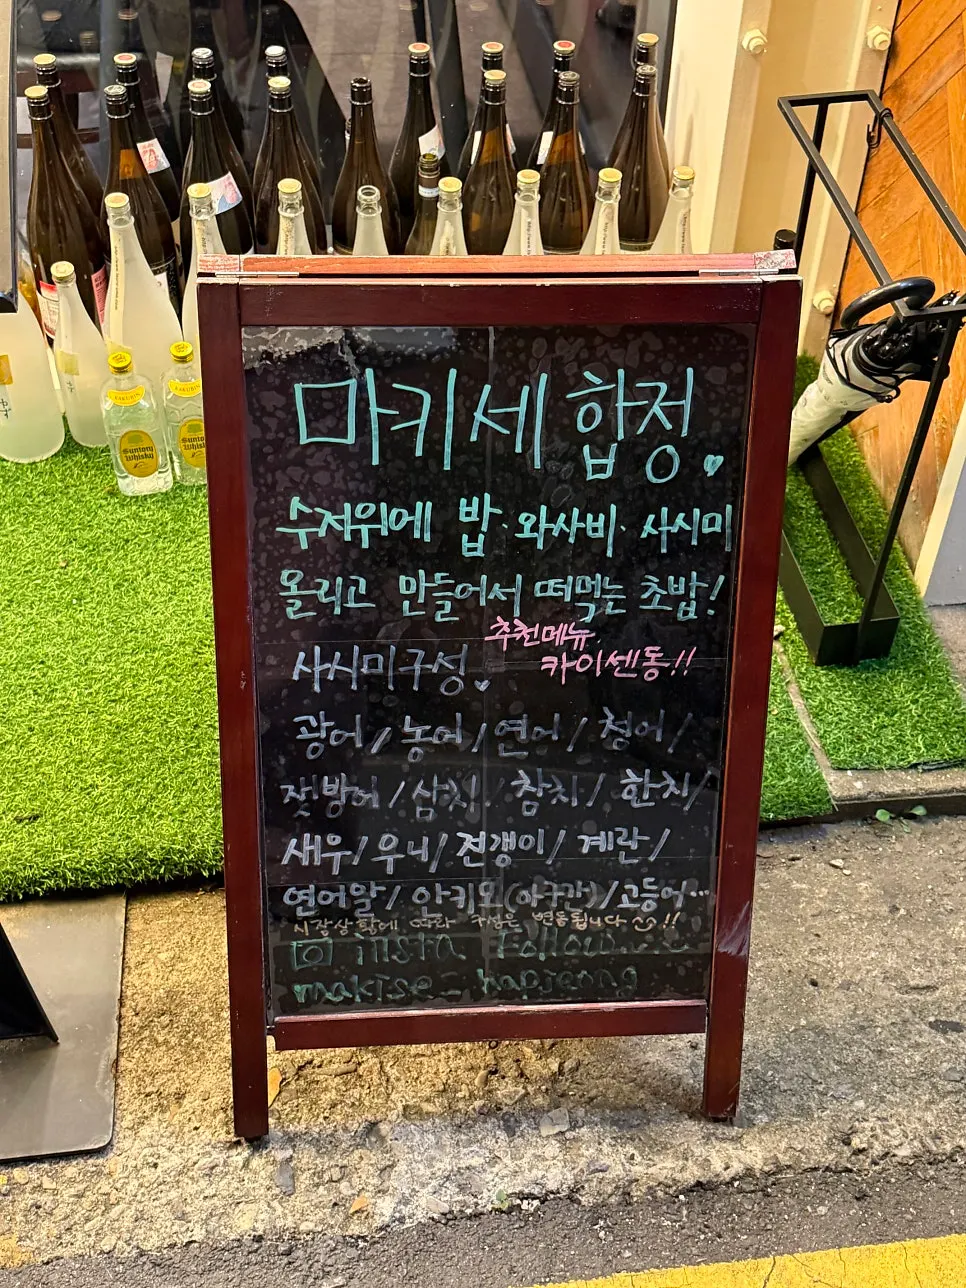 마키세 합정
수저위에 밥·와사비·사시미
올리고 만들어서 떠먹는 초밥!
추천메뉴
카이센동!!
사시미구성
광어/농어/연어/청어/
잿방어/삼치/참치/한치/
새우/우니/전갱이/계란/
연어알/안키모(아쿠간)/고등어...
시장상황에 따라 구성은 변동됩니다!!
insta Follow...
makise_hapjeong
KAKUBIN
Suntory
Whisky
KAKUBIN
Suntory
Whisky